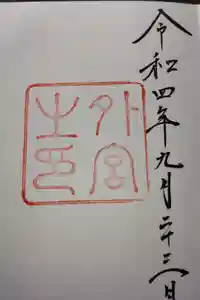 令和四年九月二十三日
外宮之印